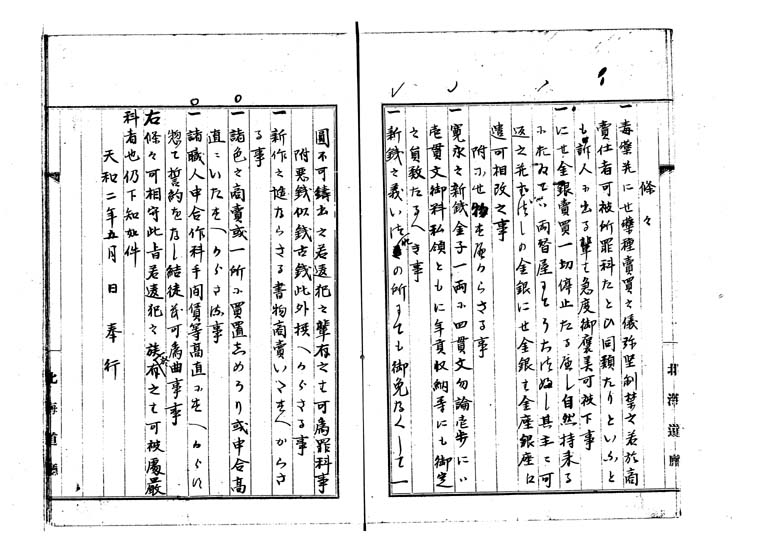 條々
一 毒薬并ニせ薬種賣買之儀弥堅制禁之若於商
賣仕者可被所罪科たとひ同類たりといふと
も訴人ニ出る輩ハ急度御褒美可被下事
一 にせ金銀賣買一切停止たる處し自然持来る
ニおゐてハ両替屋にてうちつぶし其主ニ可
返之并はつしの金銀にせ金銀ハ金座銀座江
遣可相改之事
附にせ物すへからさる事
一 寛永之新銭金子一両ニ四貫文勿論壱歩にハ
壱貫文御料私領ともに年貢収納等にも御定
之員数たるへき事
一 新銭之義いつれの所にても御免なくして一
圓不可鋳出之若違犯之輩有之ハ可為罪科事
附悪銭似銭古銭此外撰へからさる事
一 新作之慥ならさる書物商賣いたすへからさ
る事
一 諸色之商賣或一所ニ買置志めうり或申合高
直にいたすへからさる事
一 諸職人申合作料手間賃等高直にすへからす
惣て誓約をなし結徒黨可為曲事事
右條々可相守此旨若違犯之族有之ハ可被處嚴
科者也仍下知如件
天和二年五月 日 奉行
北海道廳
北海道廳